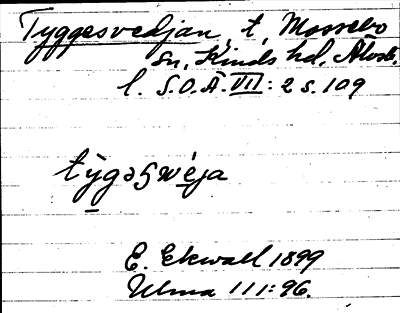 Tyggesvedjan, t, Mossebo
sn, Kinds hd, Älvsb.
l. S.O.Ä. VII: 2 s. 109
tẏgəswéja
E. Ekwall 1899
Ulma 111:96.